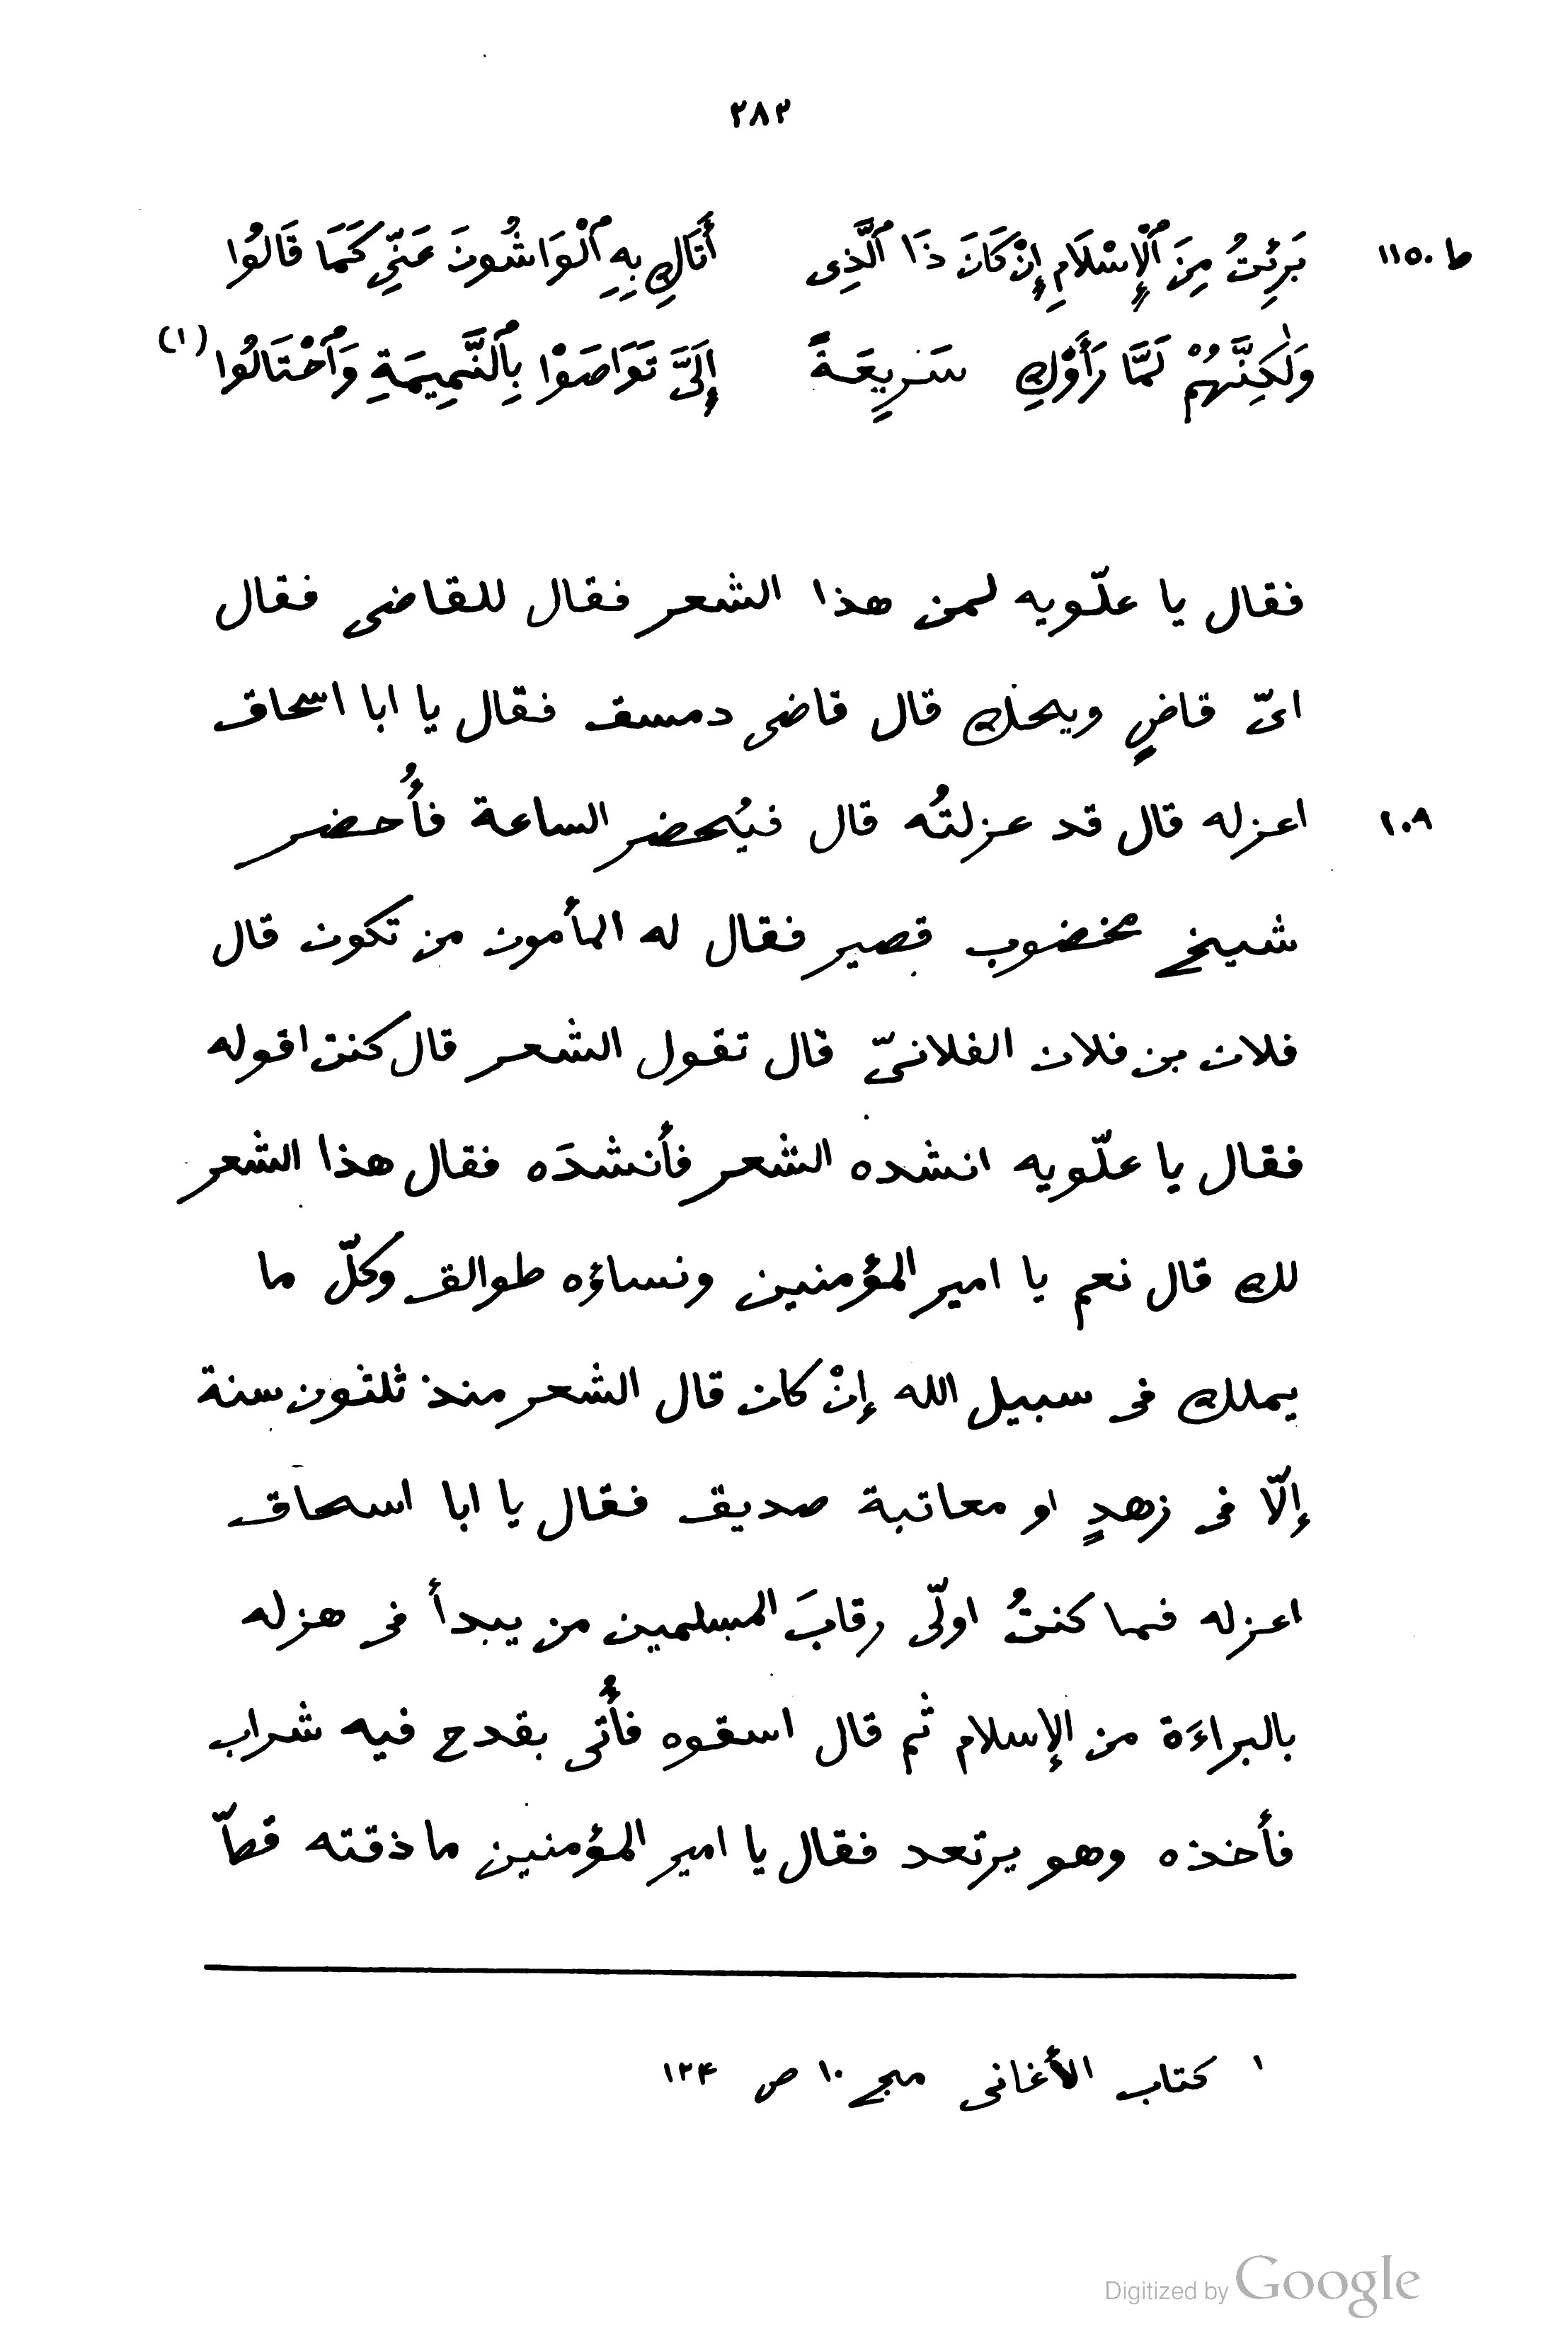 ٢٨٢
ط ١١٥٠ بَرِئْتُ مِنَ ٱلْإِسْلَامِ إِنْ كَانَ ذَا ٱلَّذِى أَتَاكِ بِهِ ٱلْوَاشُونَ عَنِّي كَمَا قَالُوا
وَلٰكِنَّهُمْ لَمَّا رَأَوْكِ سَرِيعَةً إِلَىَّ تَوَاصَوْا بِٱلنَّمِيمَةِ وَٱحْتَالُوا (١)
فقال يا علّويه لمن هذا الشعر فقال للقاضى فقال
اىّ قاضٍ ويحك قال قاضى دمسق فقال يا ابا اسحاق
١٠٩ اعزله قال قد عزلتُه قال فيُحضر الساعة فأُحضر
شيخ مخضوب قصير فقال له المأمون من تكون قال
فلان بن فلان الفلانىّ قال تقول الشعر قال كنت اقوله
فقال يا علّويه انشده الشعر فأنشدَه فقال هذا الشعر
لك قال نعم يا امير المؤمنين ونساؤه طوالق وكلّ ما
يملك فى سبيل الله إنْ كان قال الشعر منذ ثلثون سنة
إلّا فى زهدٍ او معاتبة صديق فقال يا ابا اسحاق
اعزله فما كنتُ اولّى رقابَ المسلمين من يبدأ فى هزله
بالبراءَة من الإسلام ثم قال اسقوه فأُتى بقدح فيه شراب
فأخذه وهو يرتعد فقال يا امير المؤمنين ما ذقته قطّ
١ كتاب الأغانى مج ١٠ ص ١٢٤
Digitized by Google